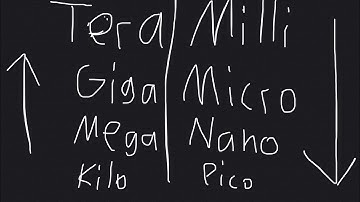 Tera Milli
Giga Micro
Mega Nano
Kilo Pico